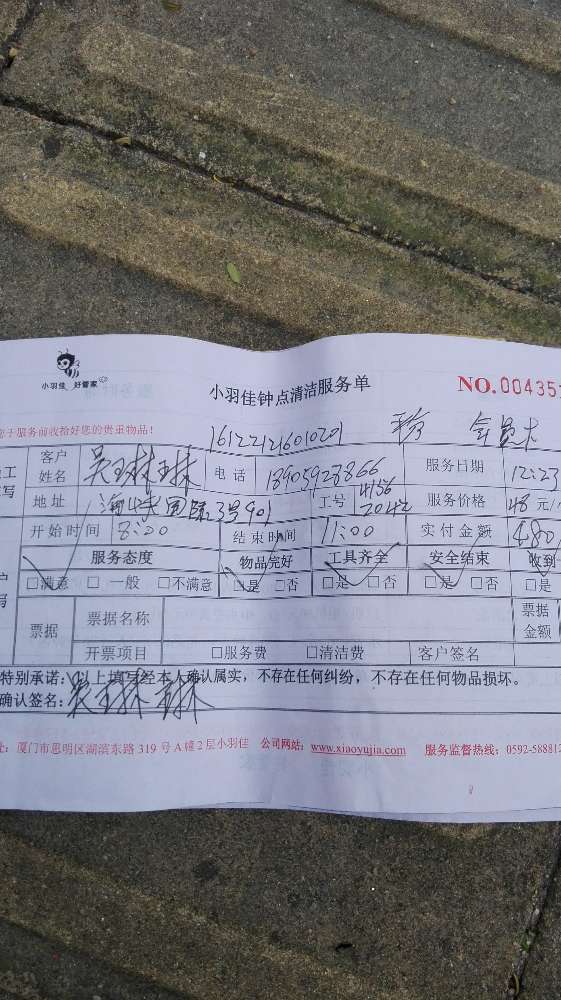 小羽佳 好管家
小羽佳钟点清洁服务单
NO.00435
于服务前收拾好您的贵重物品！
16122121601020
会员卡
客户姓名 吴琳琳 电话 13905928866 服务日期 12:23
地址 3号901 工号 4156 2042 服务价格 48元/
开始时间 8:00 结束时间 11:00 实付金额 480
服务态度 物品完好 工具齐全 安全结束 收到
□满意 □一般 □不满意 □是 □否 □是 □否 □是 □否 □是
票据 票据名称 票据金额
开票项目 □服务费 □清洁费 客户签名
特别承诺：以上填写经本人确认属实，不存在任何纠纷，不存在任何物品损坏。
确认签名: 吴琳琳
址：厦门市思明区湖滨东路 319 号 A 幢 2 层小羽佳 公司网站：www.xiaoyujia.com 服务监督热线：0592-58881